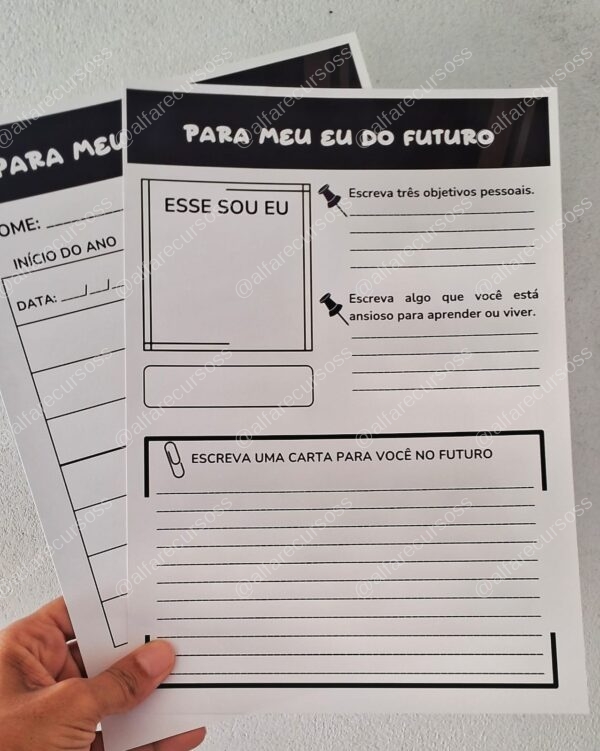 PARA MEU EU DO FUTURO
ESSE SOU EU
Escreva três objetivos pessoais.
Escreva algo que você está
ansioso para aprender ou viver.
ESCREVA UMA CARTA PARA VOCÊ NO FUTURO
PARA MEU
OME:
INÍCIO DO ANO
DATA: __/__/__
@alfarecursoss